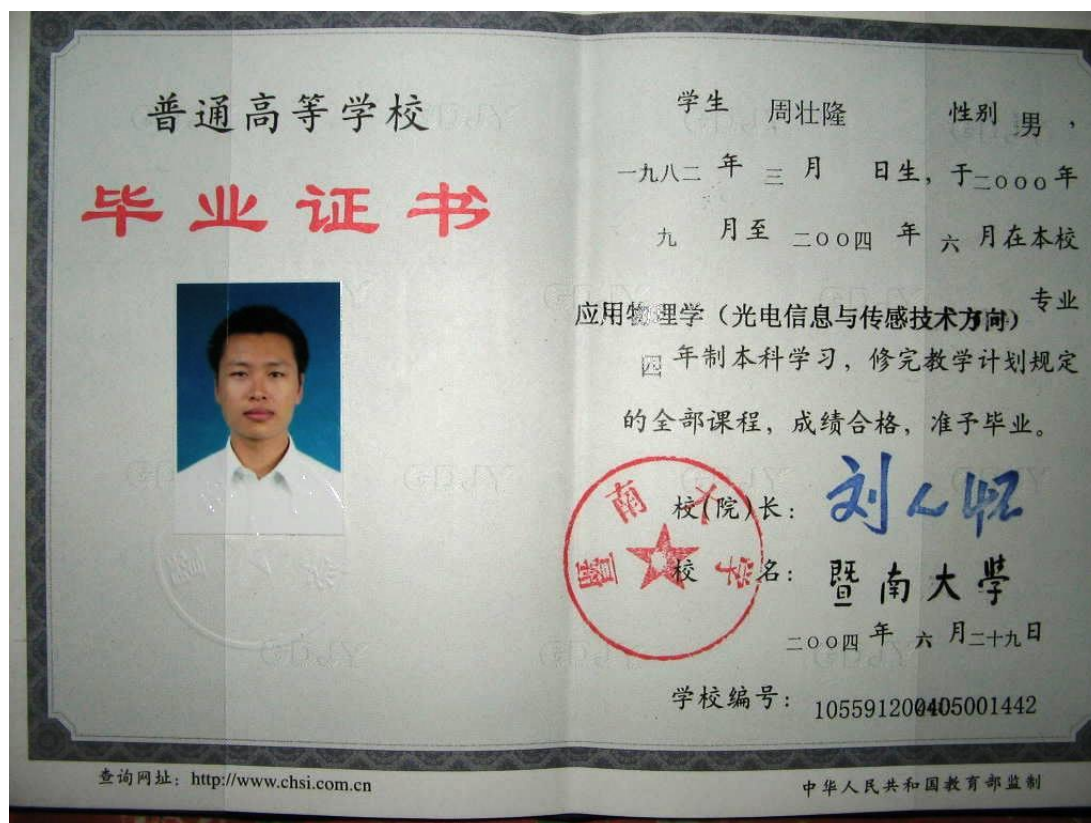 普通高等学校
毕业证书
学生 周壮隆 性别 男，
一九八二 年 三 月 日生，于二〇〇〇年
九 月至 二〇〇四 年 六 月在本校
应用物理学（光电信息与传感技术方向） 专业
四 年制本科学习，修完教学计划规定
的全部课程，成绩合格，准予毕业。
校(院)长： 刘人怀
校 名： 暨南大学
暨南大学
二〇〇四 年 六 月二十九日
学校编号： 105591200405001442
查询网址：http://www.chsi.com.cn
中华人民共和国教育部监制